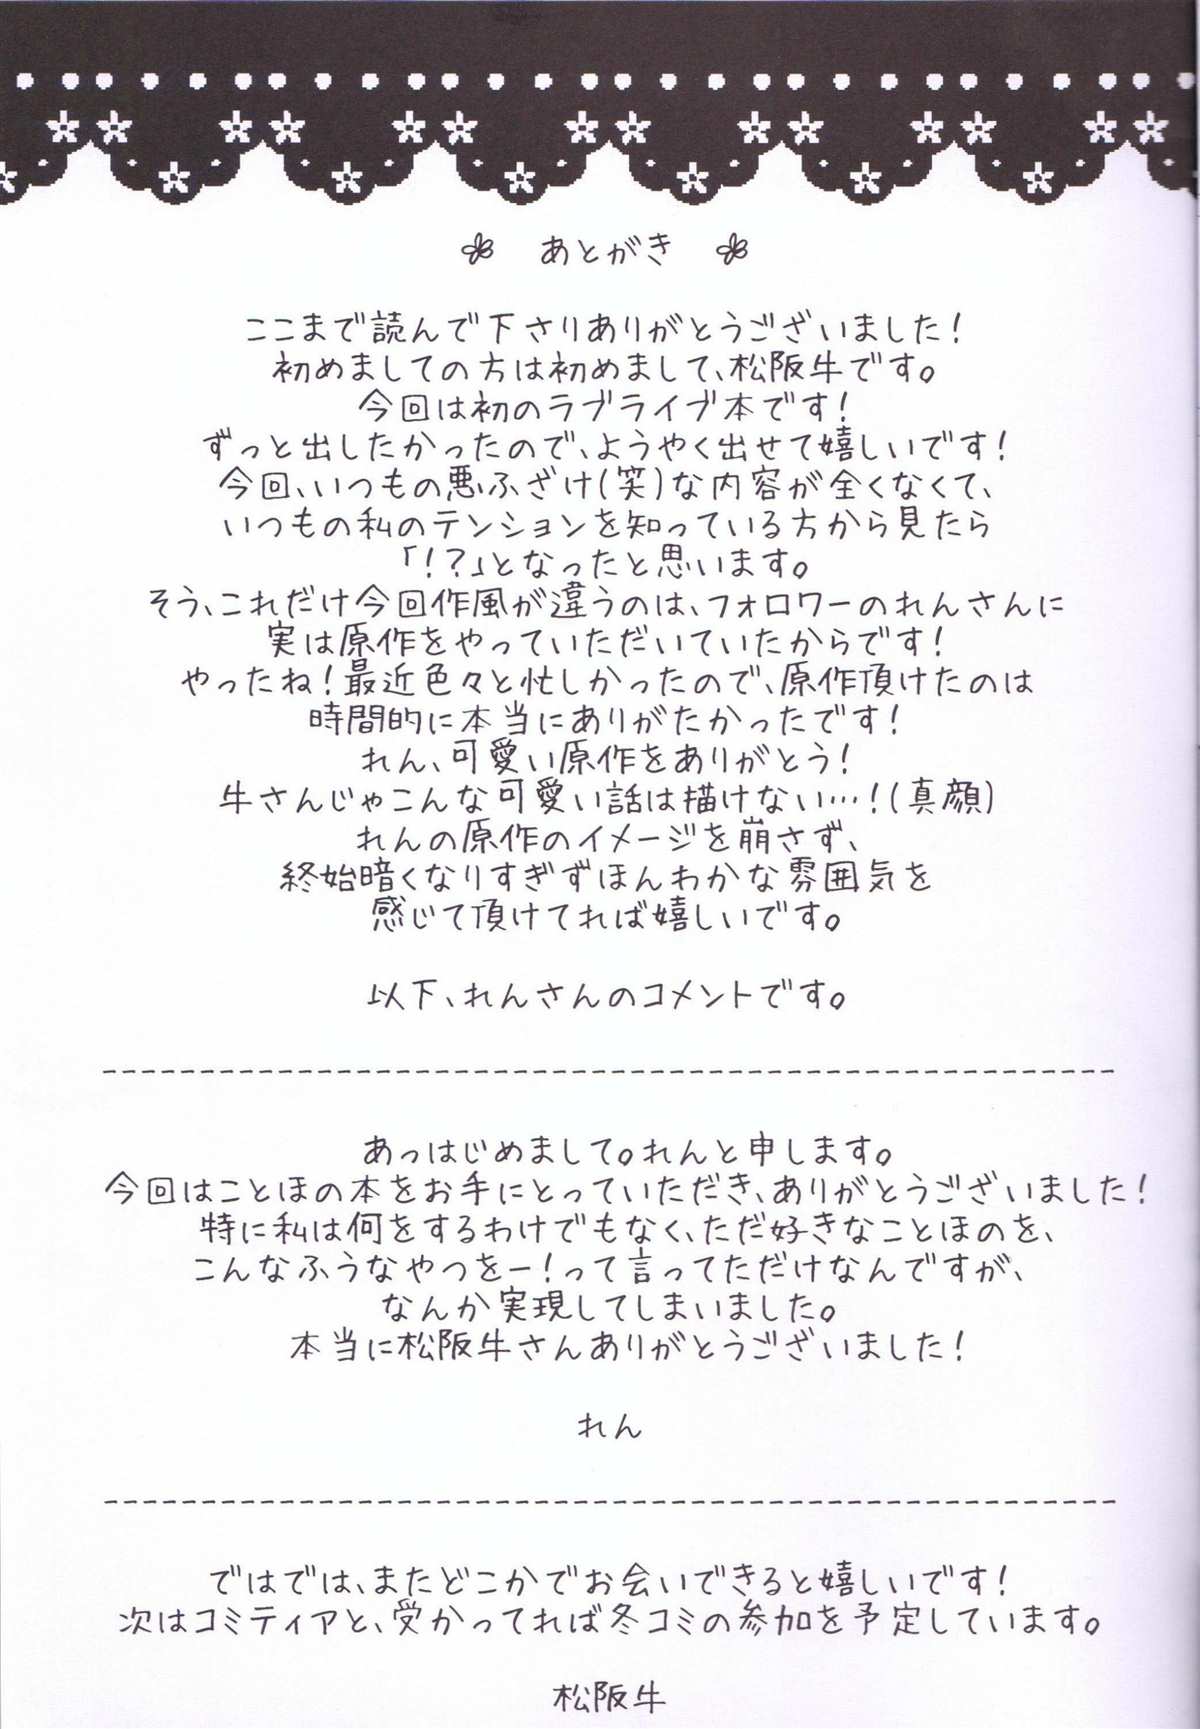 あとがき
ここまで読んで下さりありがとうございました!
初めましての方は初めまして、松阪牛です。
今回は初のラブライブ本です!
ずっと出したかったので、ようやく出せて嬉しいです!
今回、いつもの悪ふざけ(笑)な内容が全くなくて、
いつもの私のテンションを知っている方から見たら
「!?」となったと思います。
そう、これだけ今回作風が違うのは、フォロワーのれんさんに
実は原作をやっていただいていたからです!
やったね!最近色々と忙しかったので、原作頂けたのは
時間的に本当にありがたかったです!
れん、可愛い原作をありがとう!
牛さんじゃこんな可愛い話は描けない…!(真顔)
れんの原作のイメージを崩さず、
終始暗くなりすぎずほんわかな雰囲気を
感じて頂けてれば嬉しいです。
以下、れんさんのコメントです。
あっはじめまして。れんと申します。
今回はことほの本をお手にとっていただき、ありがとうございました!
特に私は何をするわけでもなく、ただ好きなことほのを、
こんなふうなやつをー!って言ってただけなんですが、
なんか実現してしまいました。
本当に松阪牛さんありがとうございました!
れん
ではでは、またどこかでお会いできると嬉しいです!
次はコミティアと、受かってれば冬コミの参加を予定しています。
松阪牛